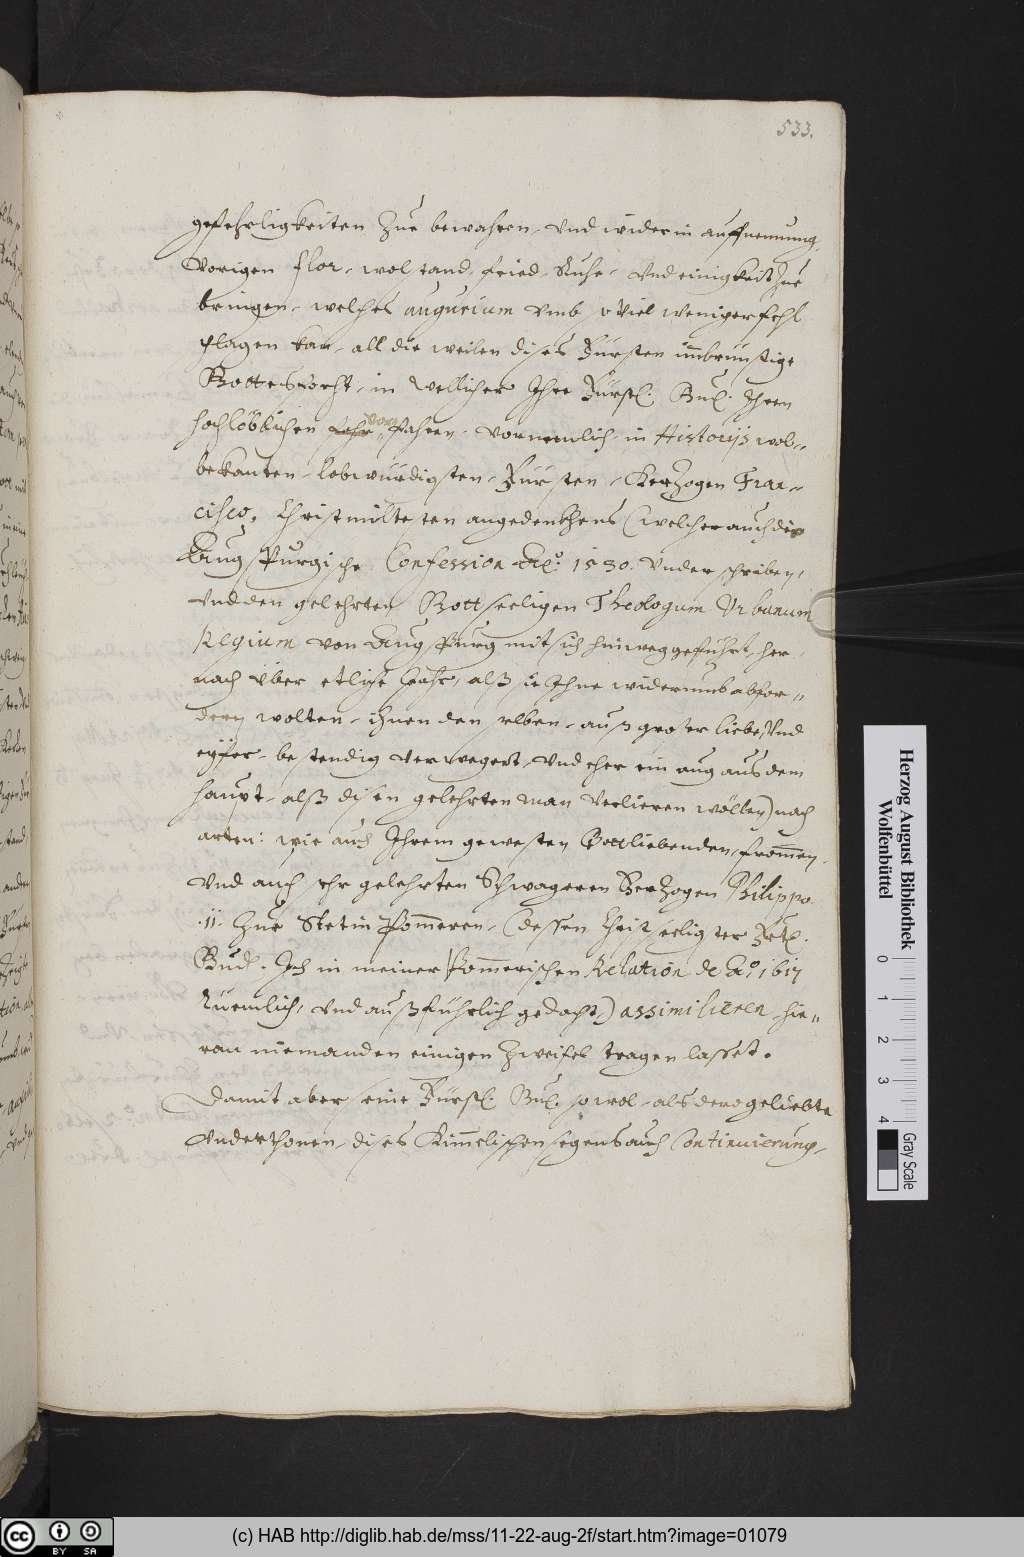 533.
gefehrligkeiten zue bewahren, vnd wider in auffnemmung,
Vorigen flor, wolstand, fried, Ruhe, vnd einigkeit zue
bringen, welches augurium vmb souiel weniger fehl
schlagen kan, all die weilen dises Fürsten innbrünstige
Gottesforcht, in wellicher Ihre Fürstl. Gnl. Ihren
hochlöblichen vor„fahren, vornemlich in Historijs wol„
bekanten, Lobwürdigsten, Fürsten, Herzogen Fran„
cisco, Christmiltesten angedenkhens (welcher auch die
Augspurgische Confession Aō. 1530. vnderschriben,
vnd den gelehrten Gottseeligen Theologum Urbanum
Regium von Augspurg mit sich hinweg geführt, her„
nach über etliche Jahr, alß sie Ihne widerumb abfor„
dern wolten, ihnen denselben, auß grosser liebe, vnd
eyfer, bestendig verwegert, vnd eher ein aug aus dem
haupt, alß disen gelehrten man verlieren wöllen) nach
arten: wie auch Ihrem gewesten Gottliebenden, frommen,
vnd auch sehr gelehrten Schwageren Herzogen Philippo
.II. Zue Stetin Pommeren, (dessen Christseeligster Frtl.
Gnd. Ich in meiner Pommerischen Relation de Aō. 1617
Zuemlich, vnd außführlich gedacht,) assimilieren, hie„
ran niemanden einigen zweifel tragen lasset.
Damit aber seine Fürstl. Gnl. sowol, als dero geliebte
Vnderthonen, dises Himmelischen segens auch Continuierung,
Herzog August Bibliothek
Wolfenbüttel
0 1 2 3 4
Gray Scale
CC BY SA
(c) HAB http://diglib.hab.de/mss/11-22-aug-2f/start.htm?image=01079